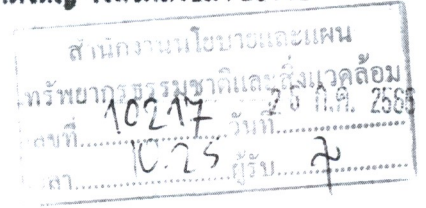 สำนักงานนโยบายและแผน
ทรัพยากรธรรมชาติและสิ่งแวดล้อม
เลขที่ 10217 วันที่ ก.ค. 256
เวลา 10.25 ผู้รับ